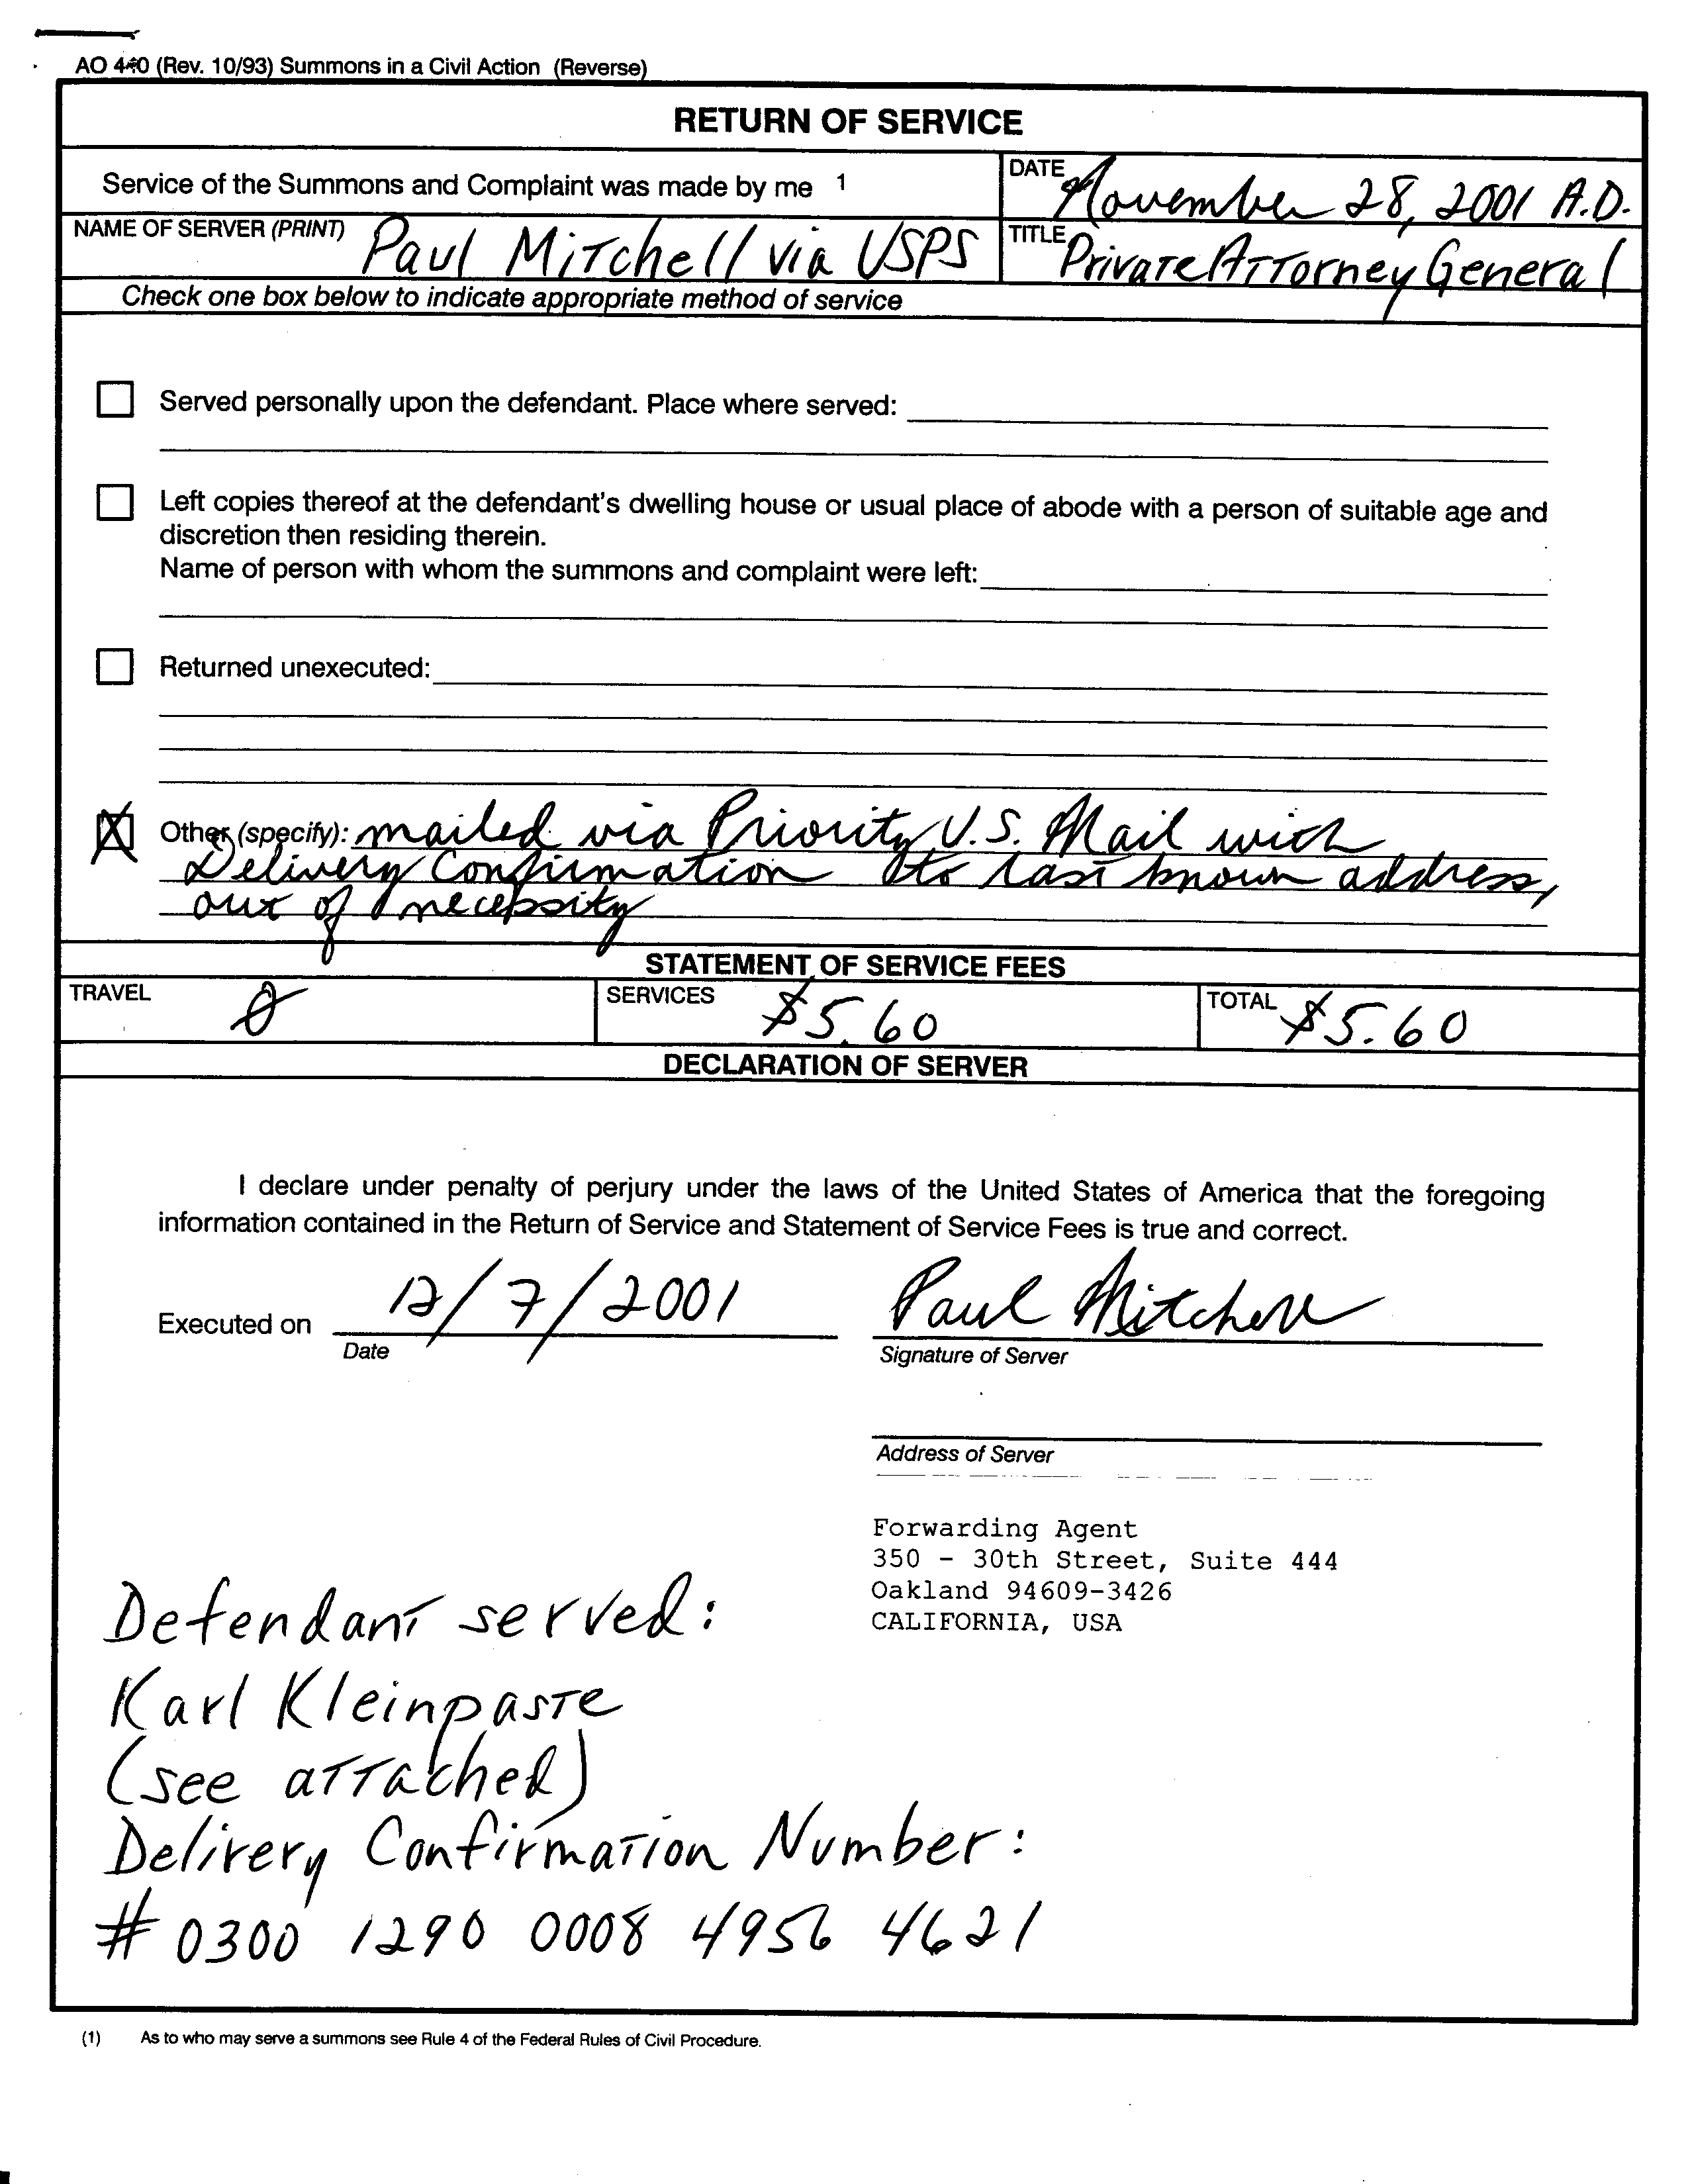 AO 440 (Rev. 10/93) Summons in a Civil Action (Reverse)
RETURN OF SERVICE
Service of the Summons and Complaint was made by me 1
DATE
November 28, 2001 A.D.
NAME OF SERVER (PRINT)
Paul Mitchell via USPS
TITLE
Private Attorney General
Check one box below to indicate appropriate method of service
Served personally upon the defendant. Place where served:
Left copies thereof at the defendant's dwelling house or usual place of abode with a person of suitable age and
discretion then residing therein.
Name of person with whom the summons and complaint were left:
Returned unexecuted:
X Other (specify): mailed via Priority U.S. Mail with
Delivery Confirmation to last known address,
out of necessity
STATEMENT OF SERVICE FEES
TRAVEL
0
SERVICES
$5.60
TOTAL
$5.60
DECLARATION OF SERVER
I declare under penalty of perjury under the laws of the United States of America that the foregoing
information contained in the Return of Service and Statement of Service Fees is true and correct.
Executed on 12/7/2001
Date
Paul Mitchell
Signature of Server
Address of Server
Forwarding Agent
350 - 30th Street, Suite 444
Oakland 94609-3426
CALIFORNIA, USA
Defendant served:
Karl Kleinpaste
(see attached)
Delivery Confirmation Number:
# 0300 1290 0008 4956 4621
(1) As to who may serve a summons see Rule 4 of the Federal Rules of Civil Procedure.